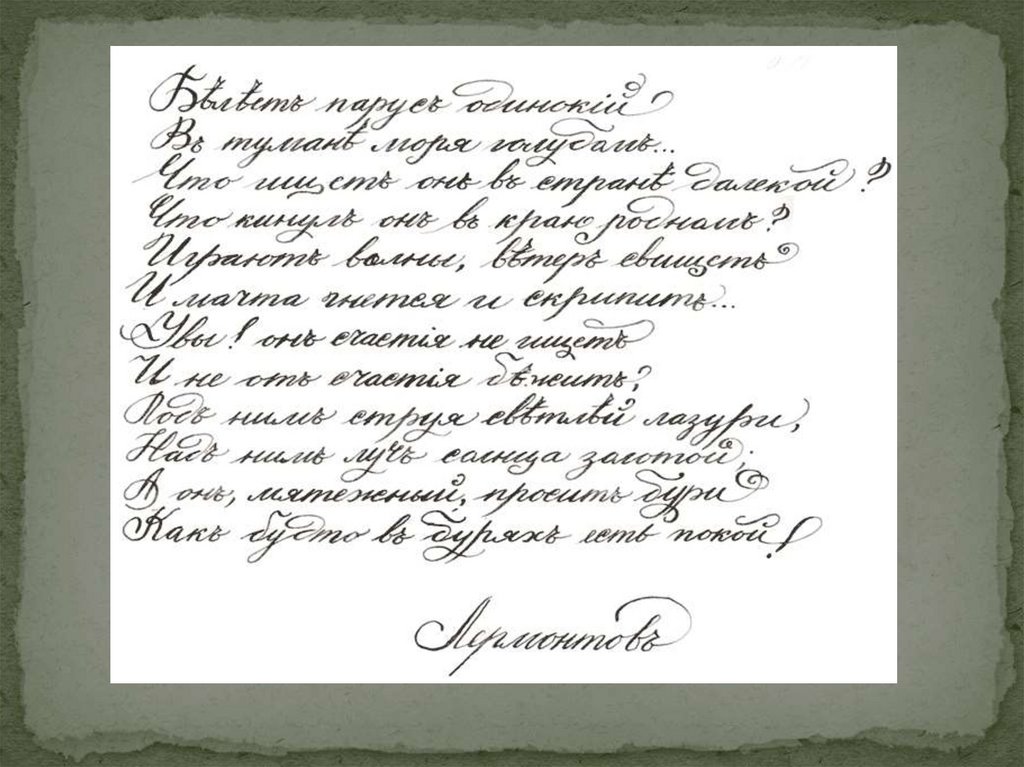 Бѣлѣетъ парусъ одинокій
Въ туманѣ моря голубомъ...
Что ищетъ онъ въ странѣ далекой?
Что кинулъ онъ въ краю родномъ?
Играютъ волны, вѣтеръ свищетъ
И мачта гнется и скрипитъ...
Увы! онъ счастія не ищетъ
И не отъ счастія бѣжитъ;
Подъ нимъ струя свѣтлѣй лазури,
Надъ нимъ лучъ солнца золотой;
А онъ, мятежный, проситъ бури
Какъ будто въ буряхъ есть покой!
Лермонтовъ